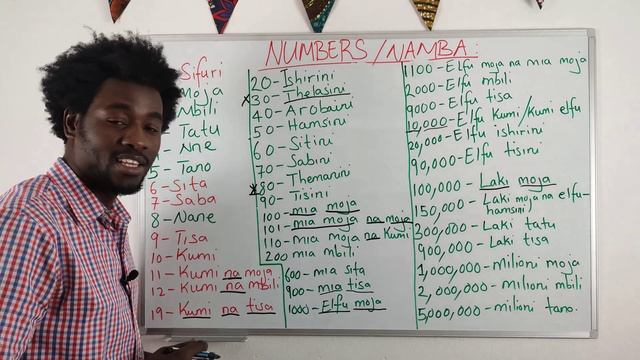 NUMBERS/NAMBA:
Sifuri
Moja
Mbili
Tatu
Nne
5- Tano
6- Sita
7- Saba
8- Nane
9- Tisa
10- Kumi
11- Kumi na moja
12- Kumi na mbili
19- Kumi na tisa
20- Ishirini
x 30- Thelasini
40- Arobaini
50- Hamsini
60- Sitini
70- Sabini
x 80- Themanini
90- Tisini
100- mia moja
101- mia moja na moja
110- mia moja na kumi
200 mia mbili
600- mia sita
900- mia tisa
1000- Elfu moja
1100- Elfu moja na mia moja
2000- Elfu mbili
9000- Elfu tisa
10,000- Elfu Kumi/Kumi elfu
20,000- Elfu ishirini
90,000- Elfu tisini
100,000- Laki moja
150,000- Laki moja na elfu-
hamsini)
300,000- Laki tatu
900,000- Laki tisa
1,000,000- milioni moja
2,000,000- milioni mbili
5,000,000- milioni tano.